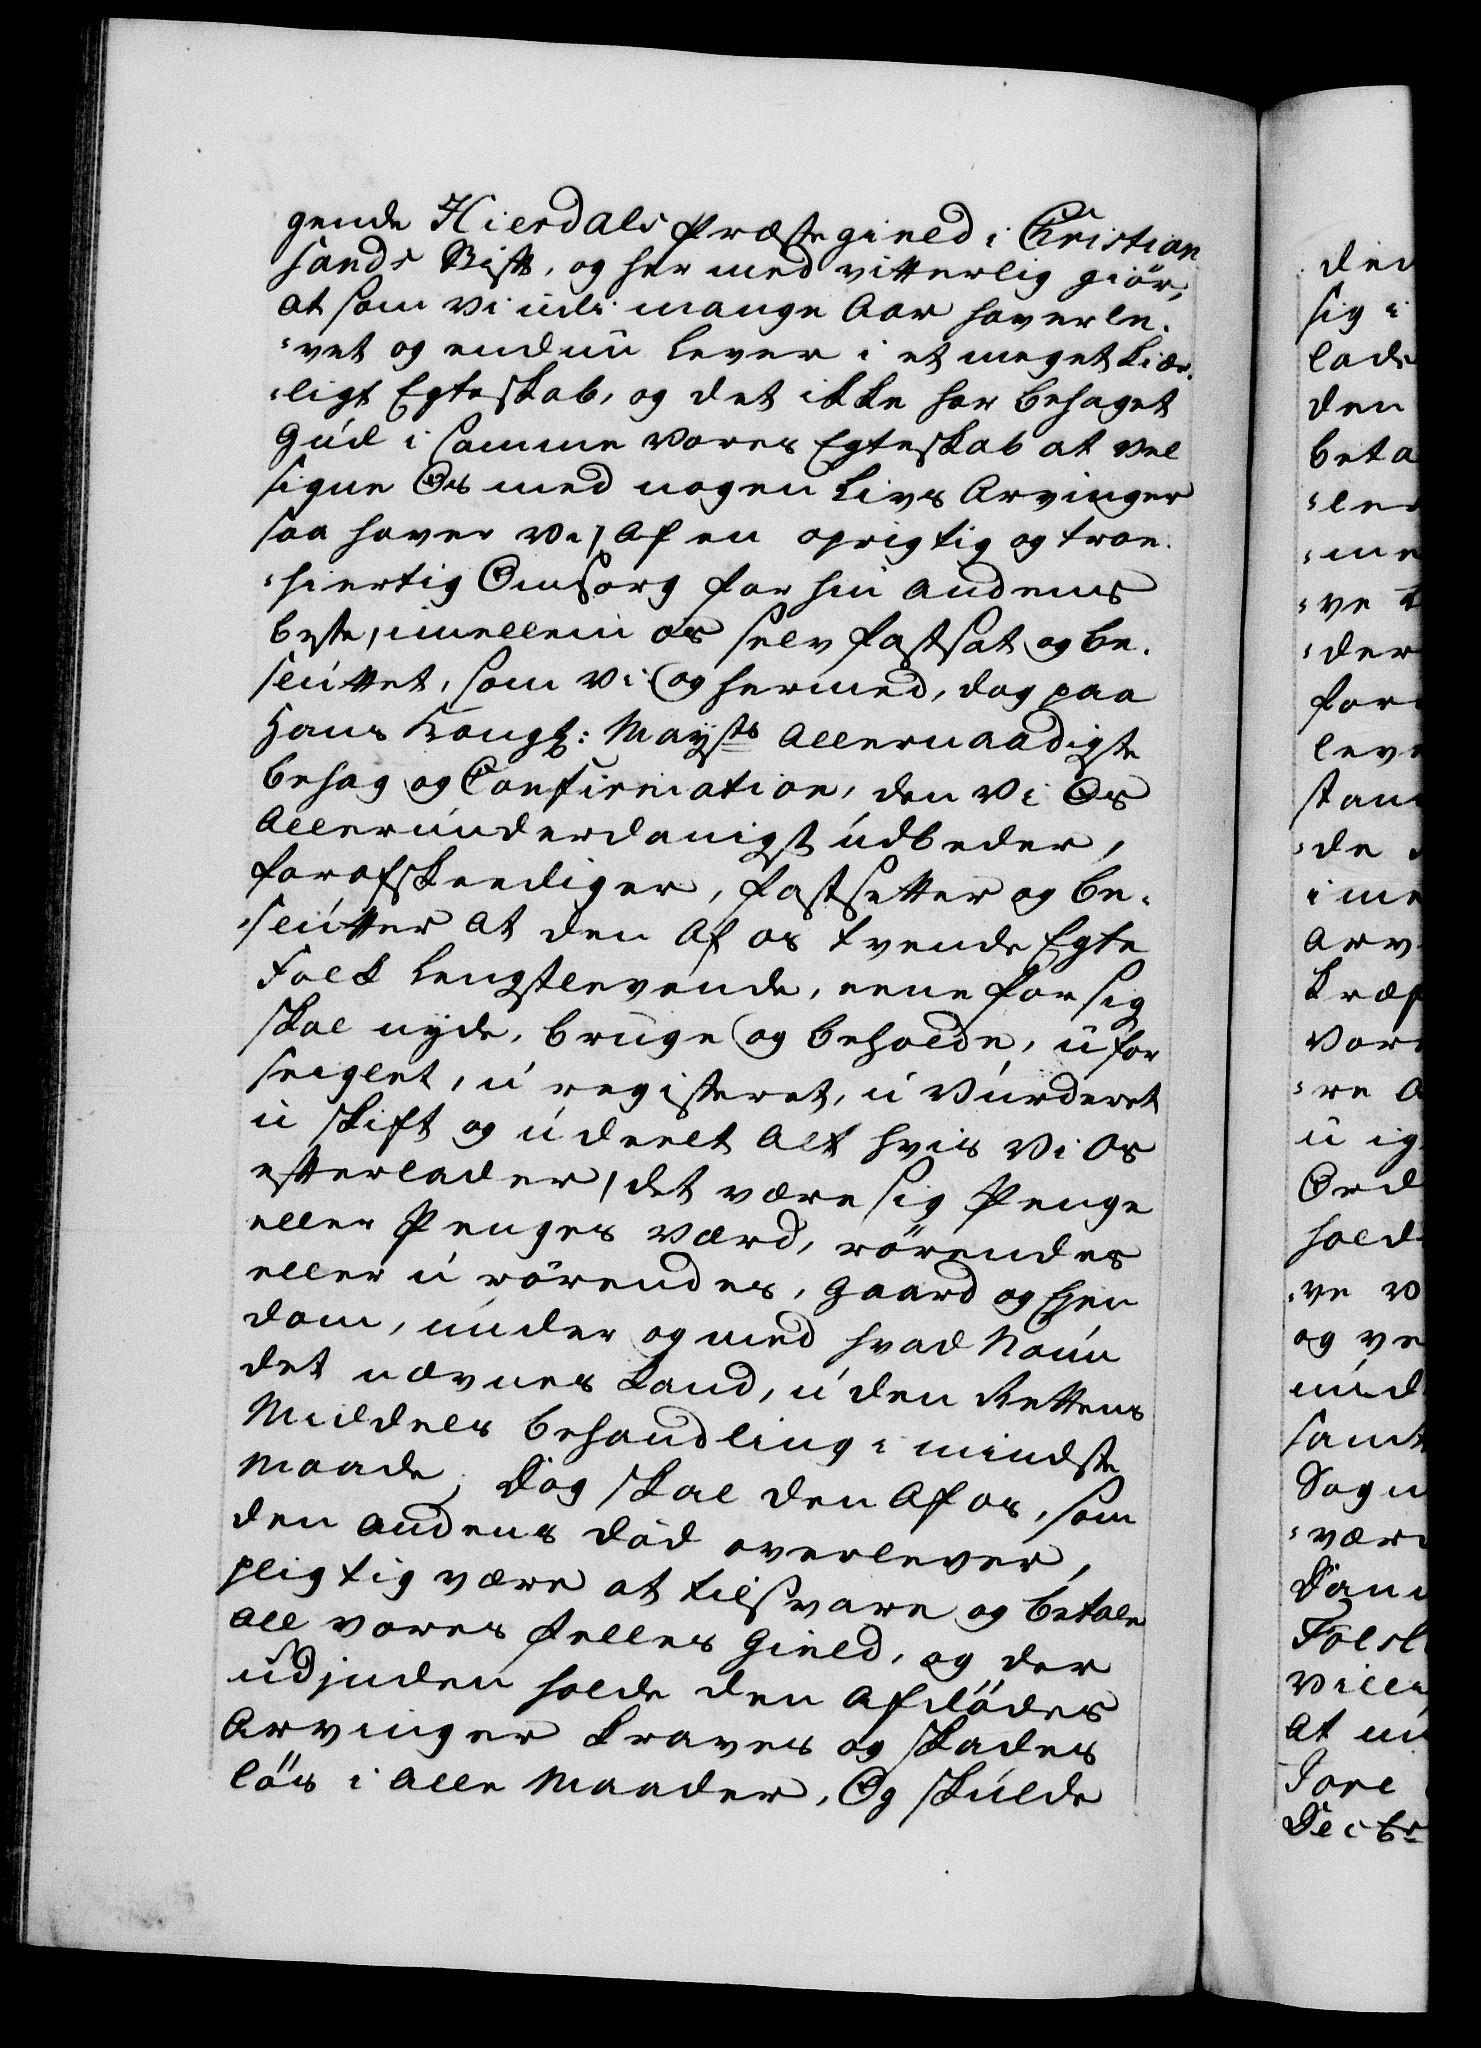 gende Hierdals Præstegield i Christian
sands Stift, og her med vitterlig giör,
at som vi udi mange Aar haver le-
vet og endnu lever i et meget kier-
ligt Egteskab, og det ikke har behaget
Gud i samme vores Egteskab at vel
signe Os med nogen Livs Arvinger
saa haver Vi, af en oprigtig og troe-
hiertig Omsorg for hin andens
beste, imellem os selv fastsat og be-
sluttet, som vi og hermed, dog paa
Hans Kongl: Mayts Allernaadigste
behag og Confirmation, den vi Os
Allerunderdanigst udbeder,
forafskeediger, fastsetter og be-
slutter at den af os tvende Egte
Folk lengstlevende, eene for sig
skal nyde, bruge og beholde, ufor
seiglet, u registeret, u vurderet
u skift og u deelt alt hvis vi os
efterlader, det være sig Penge
eller Penges værd, rörendes
eller u rörendes, Gaard og Eien
dom, under og med hvad Navn
det nævnes kand, uden Rettens
Middels behandling i mindste
Maade, Dog skal den af os, som
den andens död overlever,
pligtig være at tilsvare og betale
all vores felles Gield, og der
udjnden holde den afdödes
Arvinger kraves og skades
lös i alle Maader, Og skulde
ded
sig i
lade
den
beta
ler
me
ve
der
for
leve
stan
de
i me
Arv
kræf
vor
re A
u ig
Ord
hold
ve v
og ve
und
samt
Sogn
vær
Dan
Folk
vill
at
Tore
Decbr